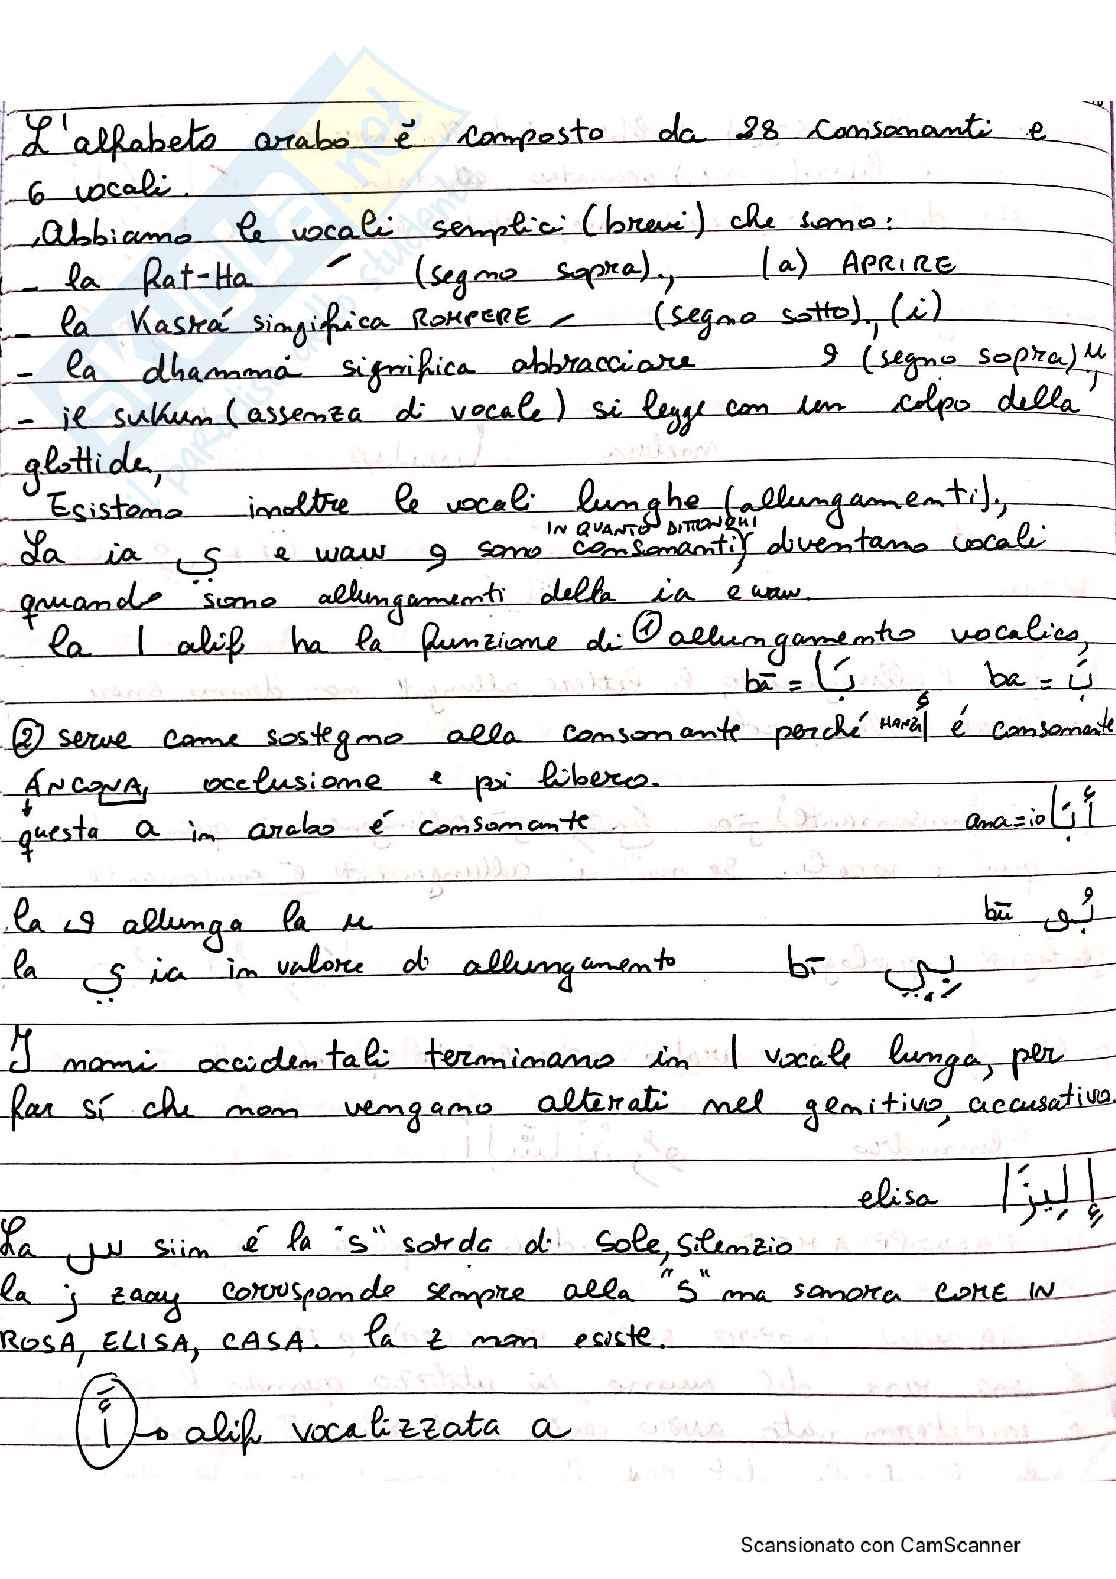 L'alfabeto arabo è composto da 28 consonanti e
6 vocali.
Abbiamo le vocali semplici (brevi) che sono:
- la fat-Ha َ (segno sopra)., (a) APRIRE
- la Kasrá singifica ROMPERE ِ (segno sotto)., (i)
- la dhammá significa abbracciare و (segno sopra) u,
- il sukun (assenza di vocale) si legge con un colpo della
glottide,
Esistono inoltre le vocali lunghe (allungamenti).,
IN QUANTO DITTONGHI
La ia ي e waw و sono consonanti, diventano vocali
quando sono allungamenti della ia e waw.
la l alif ha la funzione di ① allungamento vocalico,
bā = بَا ba = بَ
② serve come sostegno alla consonante perché HAMZA أُ é consonante
ÁNCONA, occlusione e poi libero.
questa a in arabo é consonante ana = io أَنَا
la و allunga la u bū بُو
la ي ia in valore di allungamento bī بِيي
I nomi occidentali terminano in 1 vocale lunga, per
far sí che non vengano alterati nel genitivo, accusativo.
elisa إِلِيزَا
La س siin é la "s" sorda di sole, silenzio
la ز zaay corrisponde sempre alla "S" ma sonora COME IN
ROSA, ELISA, CASA. la z non esiste.
أَ → alif vocalizzata a
Scansionato con CamScanner